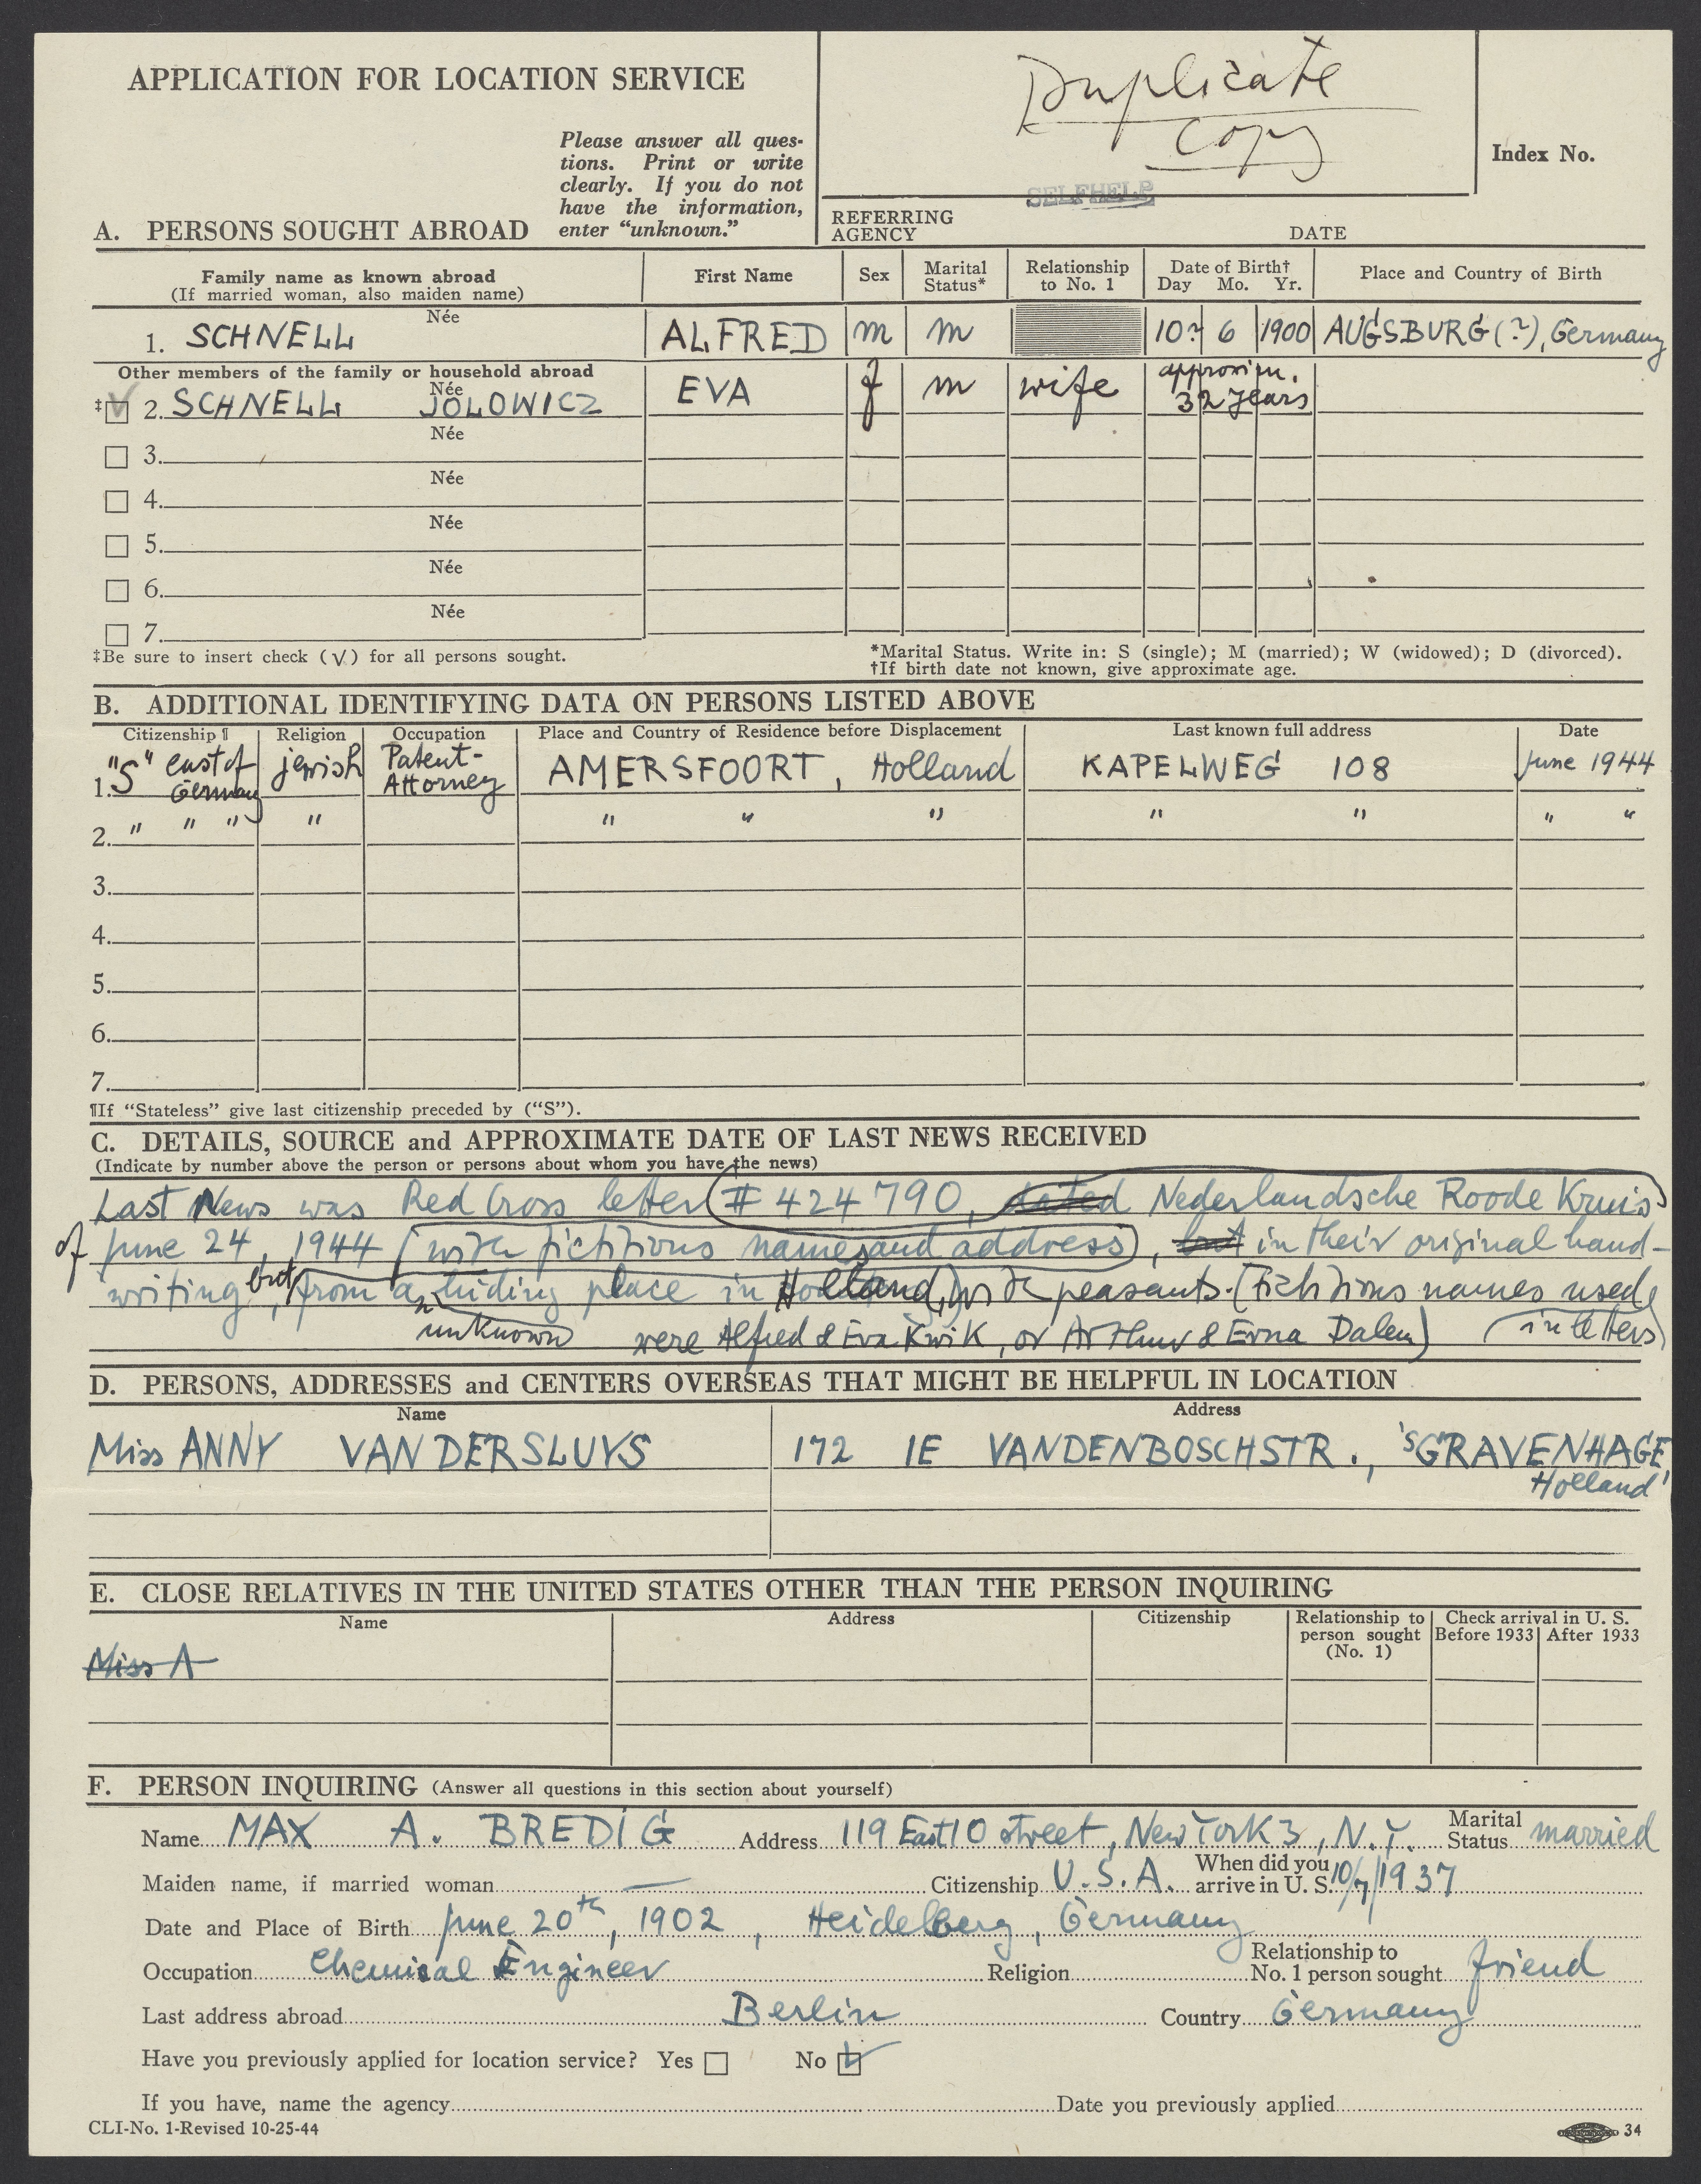 APPLICATION FOR LOCATION SERVICE
Please answer all ques-
tions. Print or write
clearly. If you do not
have the information,
enter “unknown.”
Duplicate
Copy
SELFHELP
Index No.
REFERRING
AGENCY
DATE
A. PERSONS SOUGHT ABROAD
Family name as known abroad
(If married woman, also maiden name)
First Name
Sex
Marital
Status*
Relationship
to No. 1
Date of Birth†
Day Mo. Yr.
Place and Country of Birth
Née
1. SCHNELL ALFRED m m 10? 6 1900 AUGSBURG (?), Germany
Other members of the family or household abroad
Née
‡ 2. SCHNELL JOLOWICZ EVA f m wife approxim. 32 years
Née
3.
Née
4.
Née
5.
Née
6.
Née
7.
‡Be sure to insert check (√) for all persons sought.
*Marital Status. Write in: S (single); M (married); W (widowed); D (divorced).
†If birth date not known, give approximate age.
B. ADDITIONAL IDENTIFYING DATA ON PERSONS LISTED ABOVE
Citizenship ¶ Religion Occupation Place and Country of Residence before Displacement Last known full address Date
1. "S" east of Germany jewish Patent-Attorney AMERSFOORT, Holland KAPELWEG 108 June 1944
2. " " " " " " " " " " "
3.
4.
5.
6.
7.
¶If “Stateless” give last citizenship preceded by (“S”).
C. DETAILS, SOURCE and APPROXIMATE DATE OF LAST NEWS RECEIVED
(Indicate by number above the person or persons about whom you have the news)
Last News was Red Cross letter (# 424790, dated Nederlandsche Roode Kruis)
of June 24, 1944 (with fictitious names and address), but in their original hand-
writing but, from a hiding place in Holland, with peasants. (Fictitious names used
unknown were Alfred & Eva Kwik, or Arthur & Erna Dalen) (in letters)
D. PERSONS, ADDRESSES and CENTERS OVERSEAS THAT MIGHT BE HELPFUL IN LOCATION
Name Address
Miss ANNY VAN DER SLUYS 172 IE VANDENBOSCHSTR., 'SGRAVENHAGE,
Holland
E. CLOSE RELATIVES IN THE UNITED STATES OTHER THAN THE PERSON INQUIRING
Name Address Citizenship
Relationship to
person sought
(No. 1)
Check arrival in U. S.
Before 1933 After 1933
Miss A
F. PERSON INQUIRING (Answer all questions in this section about yourself)
Name MAX A. BREDIG Address 119 East 10 street, New York 3, N.Y. Marital Status married
Maiden name, if married woman — Citizenship U.S.A. When did you arrive in U. S. 10/7/1937
Date and Place of Birth June 20th, 1902, Heidelberg, Germany
Occupation Chemical Engineer Religion Relationship to No. 1 person sought friend
Last address abroad Berlin Country Germany
Have you previously applied for location service? Yes No
If you have, name the agency Date you previously applied
CLI-No. 1-Revised 10-25-44
34